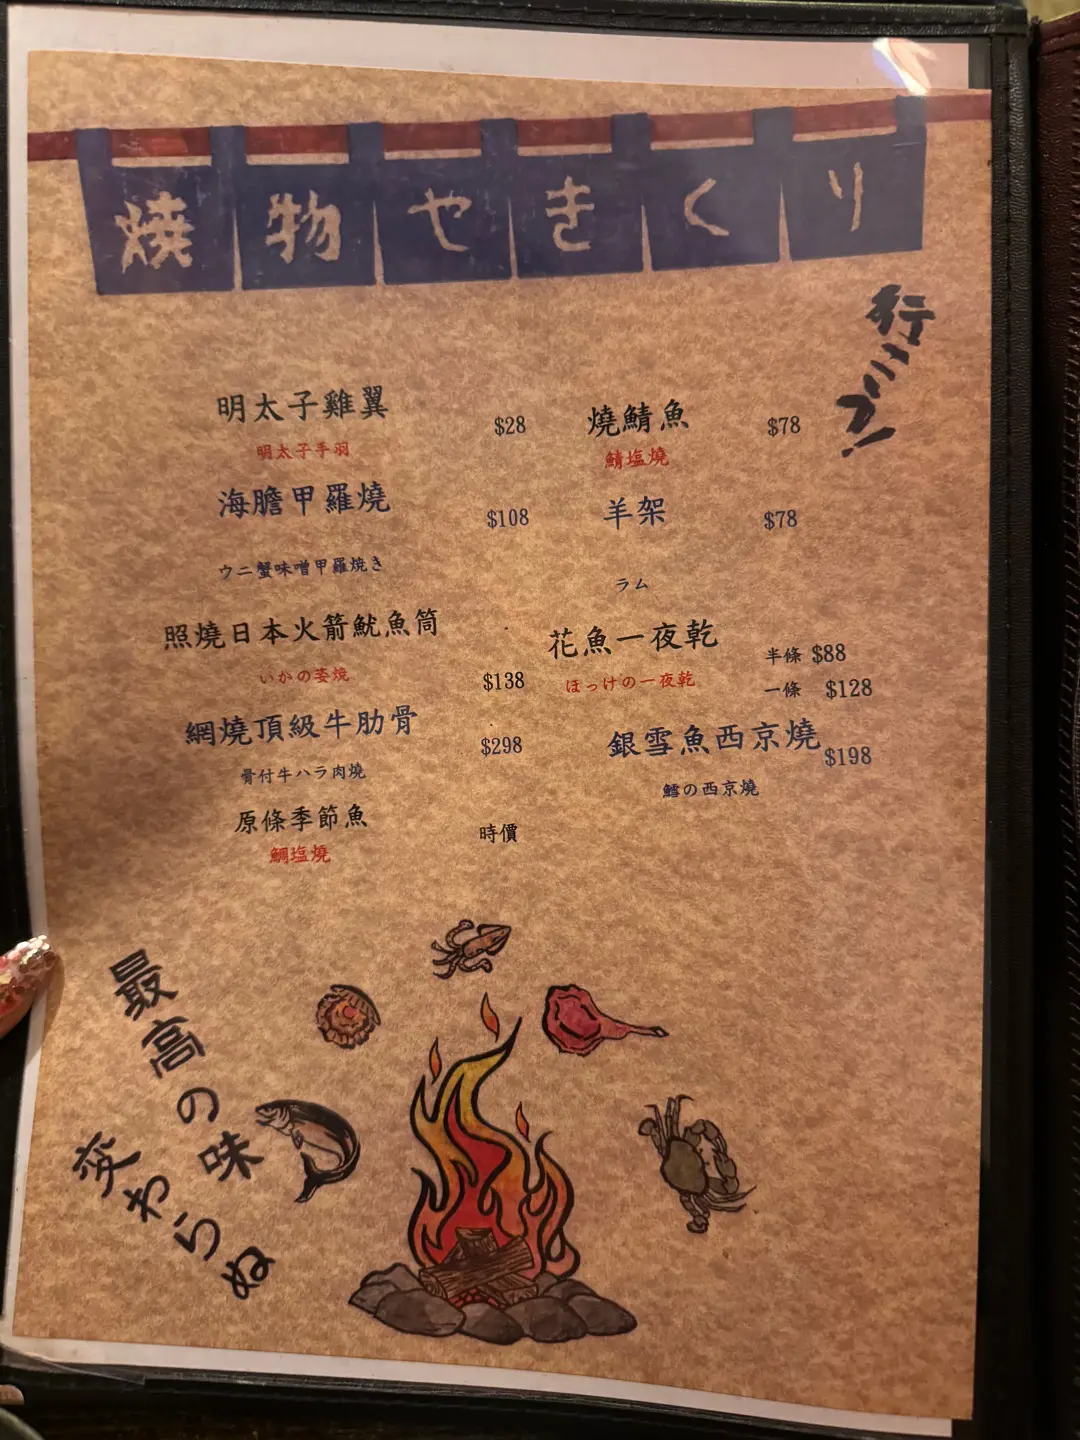 燒物やきくり
行こう!
明太子雞翼 $28
明太子手羽
海膽甲羅燒 $108
ウニ蟹味噌甲羅焼き
照燒日本火箭魷魚筒 $138
いかの姿焼
網燒頂級牛肋骨 $298
骨付牛ハラ肉燒
原條季節魚 時價
鯛塩燒
燒鯖魚 $78
鯖塩燒
羊架 $78
ラム
花魚一夜乾 半條 $88
一條 $128
ほっけの一夜乾
銀雪魚西京燒 $198
鱈の西京燒
最高の味
変わらぬ